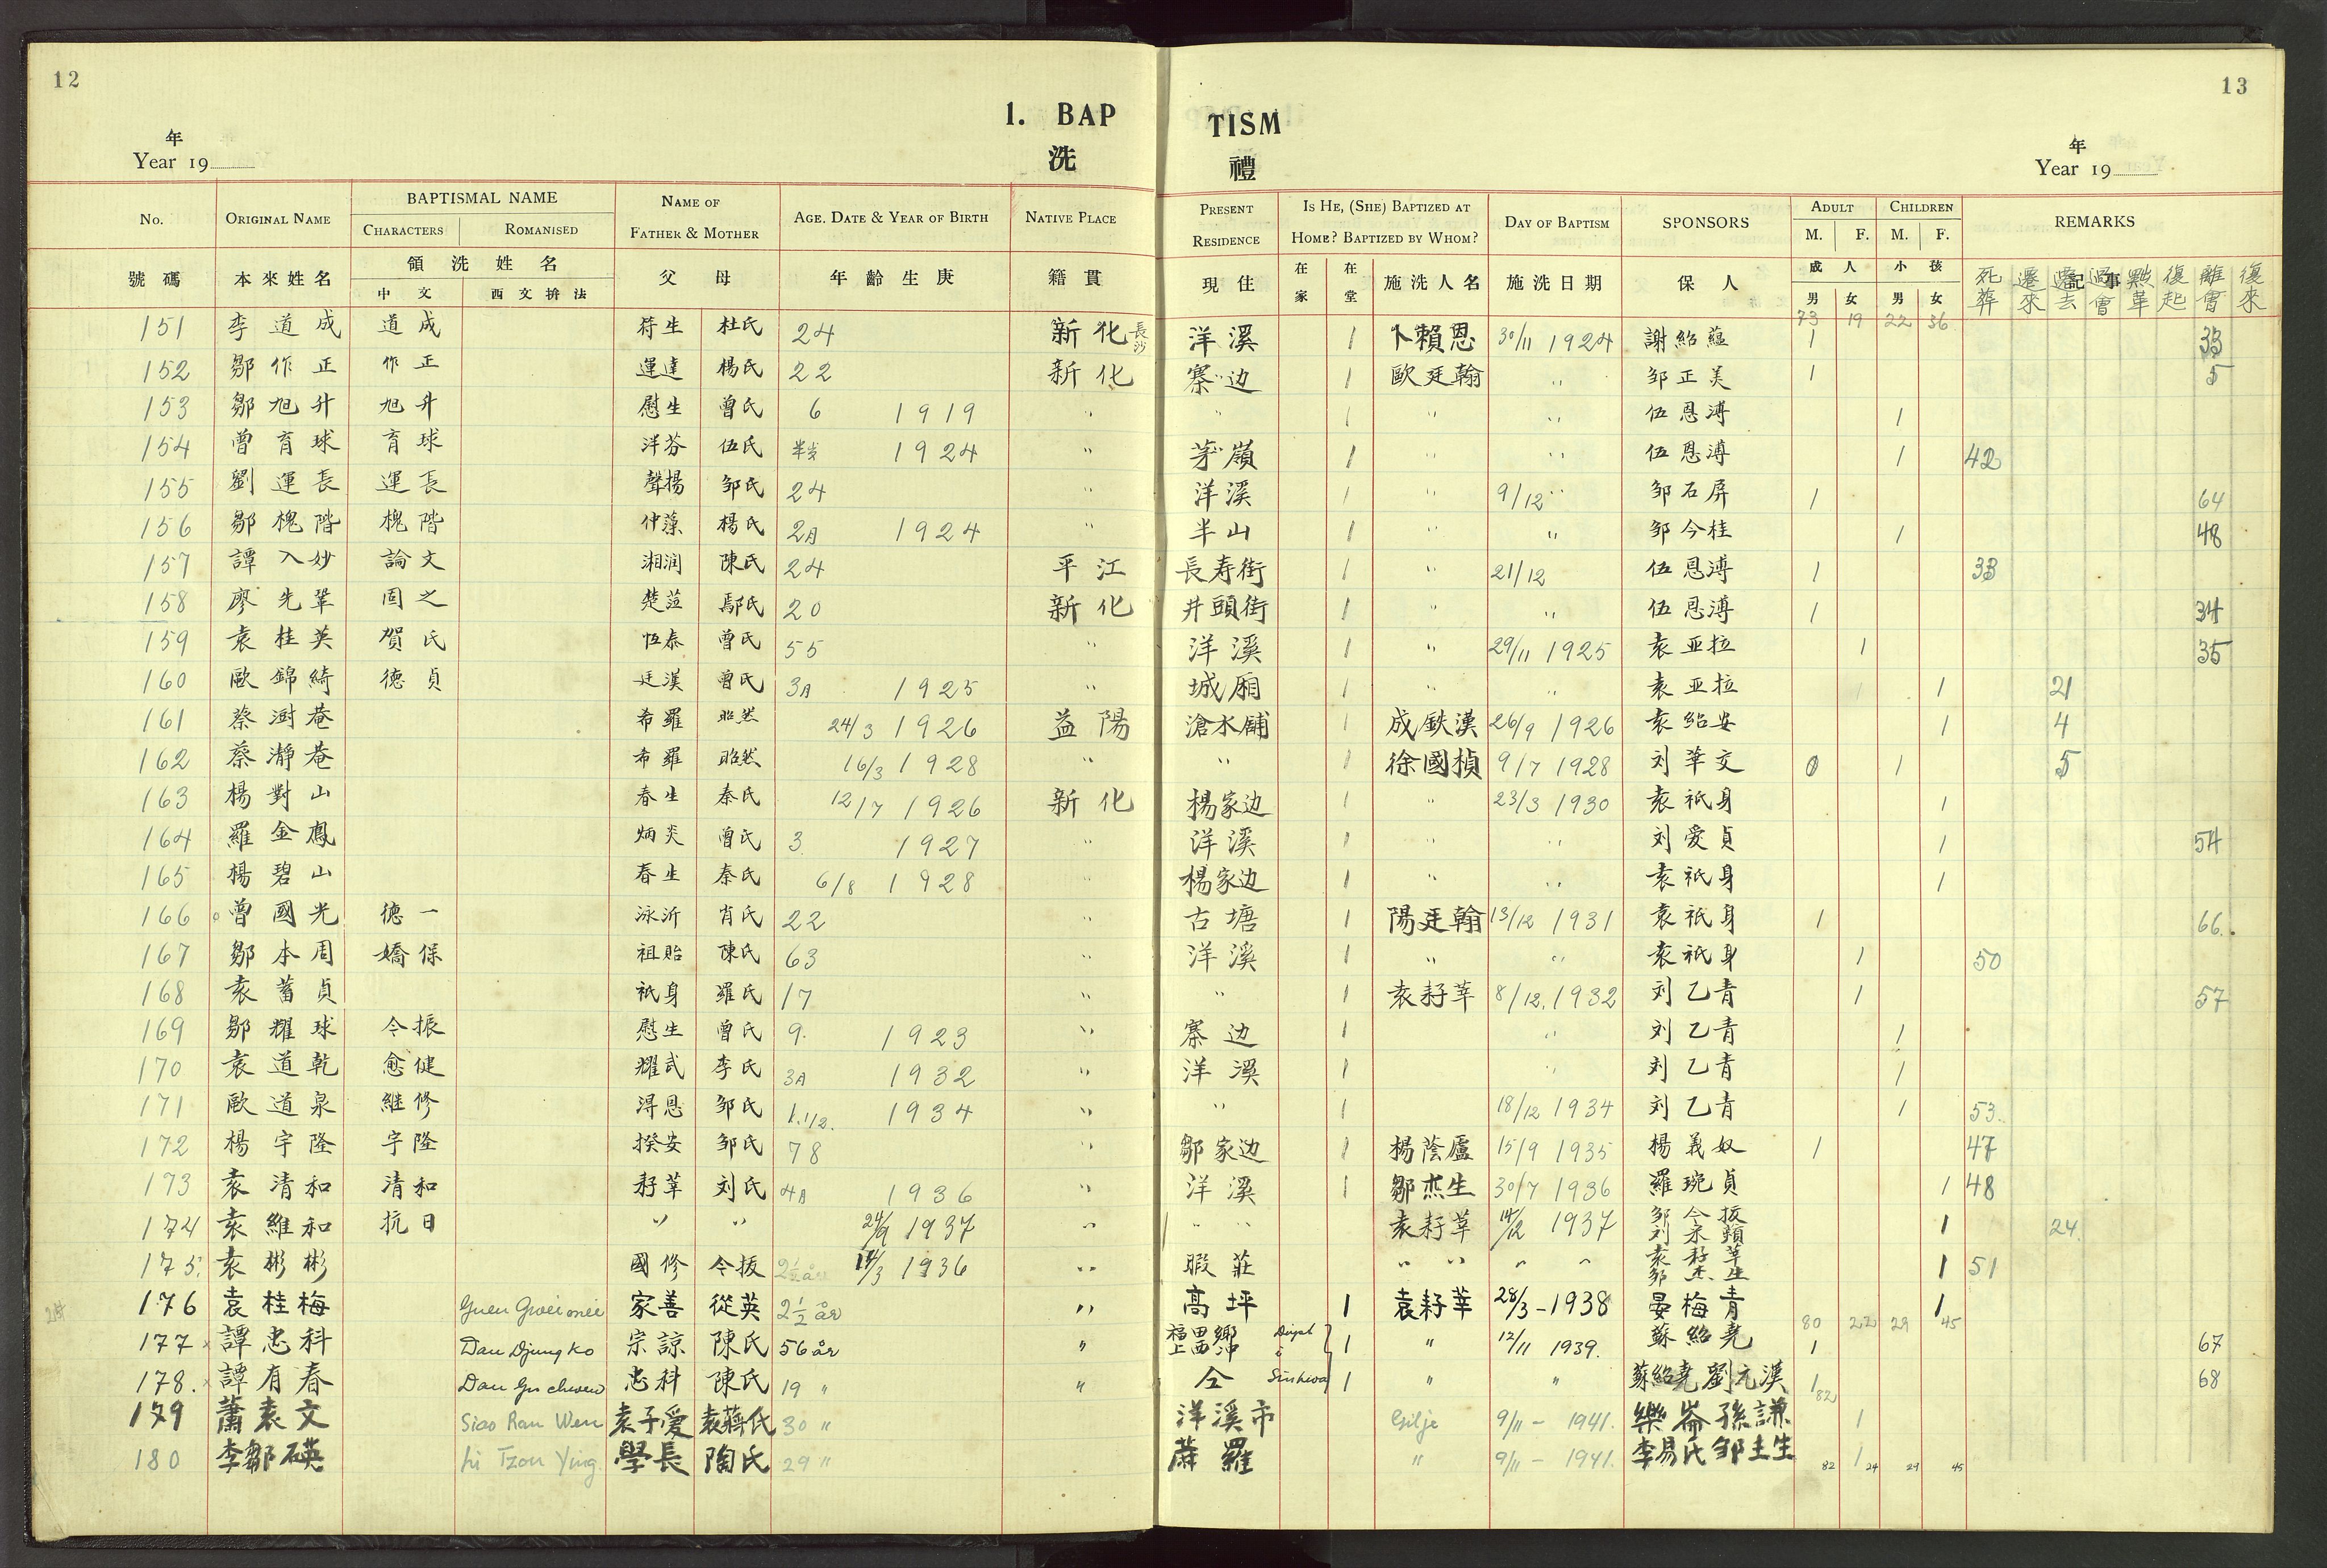 12
13
1. BAP TISM
洗 禮
年
Year 19
年
Year 19
No. ORIGINAL NAME BAPTISMAL NAME CHARACTERS ROMANISED NAME OF FATHER & MOTHER AGE. DATE & YEAR OF BIRTH NATIVE PLACE PRESENT RESIDENCE IS HE, (SHE) BAPTIZED AT HOME? BAPTIZED BY WHOM? DAY OF BAPTISM SPONSORS ADULT M. F. CHILDREN M. F. REMARKS
號碼 本來姓名 領洗姓名 中文 西文拚法 父母 年齡生庚 籍貫 現住 在家 在堂 施洗人名 施洗日期 保人 成人 男 女 小孩 男 女 記事
死葬 遷來 遷去 過會 黜革 復起 離會 復來
73 19 22 36
151 李道成 道成 符生 杜氏 24 新化 長沙 洋溪 1 卜賴恩 30/11 1924 謝紹蘊 1 33
152 鄒作正 作正 運達 楊氏 22 新化 寨边 1 歐廷翰 〃 邹正美 1 5
153 鄒旭升 旭升 慰生 曾氏 6 1919 〃 〃 1 〃 〃 伍恩溥 1
154 曾育球 育球 洋芬 伍氏 半岁 1924 〃 茅嶺 1 〃 〃 伍恩溥 1 42
155 劉運長 運長 聲揚 邹氏 24 〃 洋溪 1 〃 9/12 〃 邹石屏 1 64
156 鄒槐階 槐階 仲藻 楊氏 2A 1924 〃 半山 1 〃 〃 邹今桂 1 48
157 譚入妙 論文 湘润 陳氏 24 平江 長寿街 1 〃 21/12 伍恩溥 1 33
158 廖先鞏 固之 鄢氏 20 新化 井頭街 1 〃 〃 伍恩溥 1 34
159 袁桂英 賀氏 恆泰 曾氏 55 〃 洋溪 1 〃 29/11 1925 袁亚拉 1 35
160 歐錦綺 德貞 廷漢 曾氏 3A 1925 〃 城廂 1 〃 〃 袁亚拉 1 21
161 蔡澍菴 希羅 昭然 24/3 1926 益陽 滄水舖 1 成鉄漢 26/9 1926 袁紹安 1 4
162 蔡瀞菴 希羅 昭然 16/3 1928 〃 〃 1 徐國楨 9/7 1928 刘華交 0 1 5
163 楊對山 春生 秦氏 12/7 1926 新化 楊家边 1 〃 23/3 1930 袁祇身 1
164 羅金鳳 炳炎 曾氏 3 1927 〃 洋溪 1 〃 〃 刘愛貞 1 54
165 楊碧山 春生 秦氏 6/8 1928 〃 楊家边 1 〃 〃 袁祇身 1
166 曾國光 德一 泳沂 肖氏 22 〃 古塘 1 陽廷翰 13/12 1931 袁祇身 1 66.
167 鄒本周 嬌保 祖貽 陳氏 63 〃 洋溪 1 〃 〃 袁祇身 1 50
168 袁蓄貞 祇身 羅氏 17 〃 〃 1 袁耔莘 8/12. 1932 刘乙青 1 57
169 鄒耀球 令振 慰生 曾氏 9. 1923 〃 寨边 1 〃 刘乙青 1
170 袁道乾 愈健 耀武 李氏 3A 1932 〃 洋溪 1 〃 刘乙青 1
171 歐道泉 継修 淂恩 邹氏 1.1/2. 1934 〃 〃 1 18/12 1934 刘乙青 1 53.
172 楊宇隆 宇隆 揆安 邹氏 78 〃 鄒家边 1 楊蔭廬 15/9 1935 楊義奴 1 47
173 袁清和 清和 耔莘 刘氏 4A 1936 〃 洋溪 1 鄒杰生 30/7 1936 羅琬貞 1 48
174 袁維和 抗日 〃 〃 24/9 1937 〃 1 〃 〃 袁耔莘 14/12 1937 邹令拔 1 24.
175. 袁彬彬 國修 令拔 2½ år 1936 〃 暇莊 〃 〃 〃 〃 袁耔莘 邹杰生 1 51
176 袁桂梅 Guen Gwei mei 家善 從英 2½ år 〃 高坪 1 袁耔莘 28/3-1938 晏梅青 1
80 22 29 45
177 譚忠科 Dan Djung ko 宗諒 陳氏 56 år 〃 1 〃 12/11 1939. 蘇紹堯 1 67
178. 譚有春 忠科 陳氏 19 〃 〃 仝 Sinhwa 1 〃 〃 蘇紹堯 劉元漢 1 82 68
179 蕭袁文 Siao Ran Wen 袁子愛 袁蔣氏 30 〃 洋溪市 Gilje 9/11 - 1941. 樂崙 孫謙 1
180 李鄒碤 Li Tzou Ying. 學長 陶氏 29 〃 蔴羅 〃 9/11 - 1941. 李易氏 邹主生 1
82 24 29 45